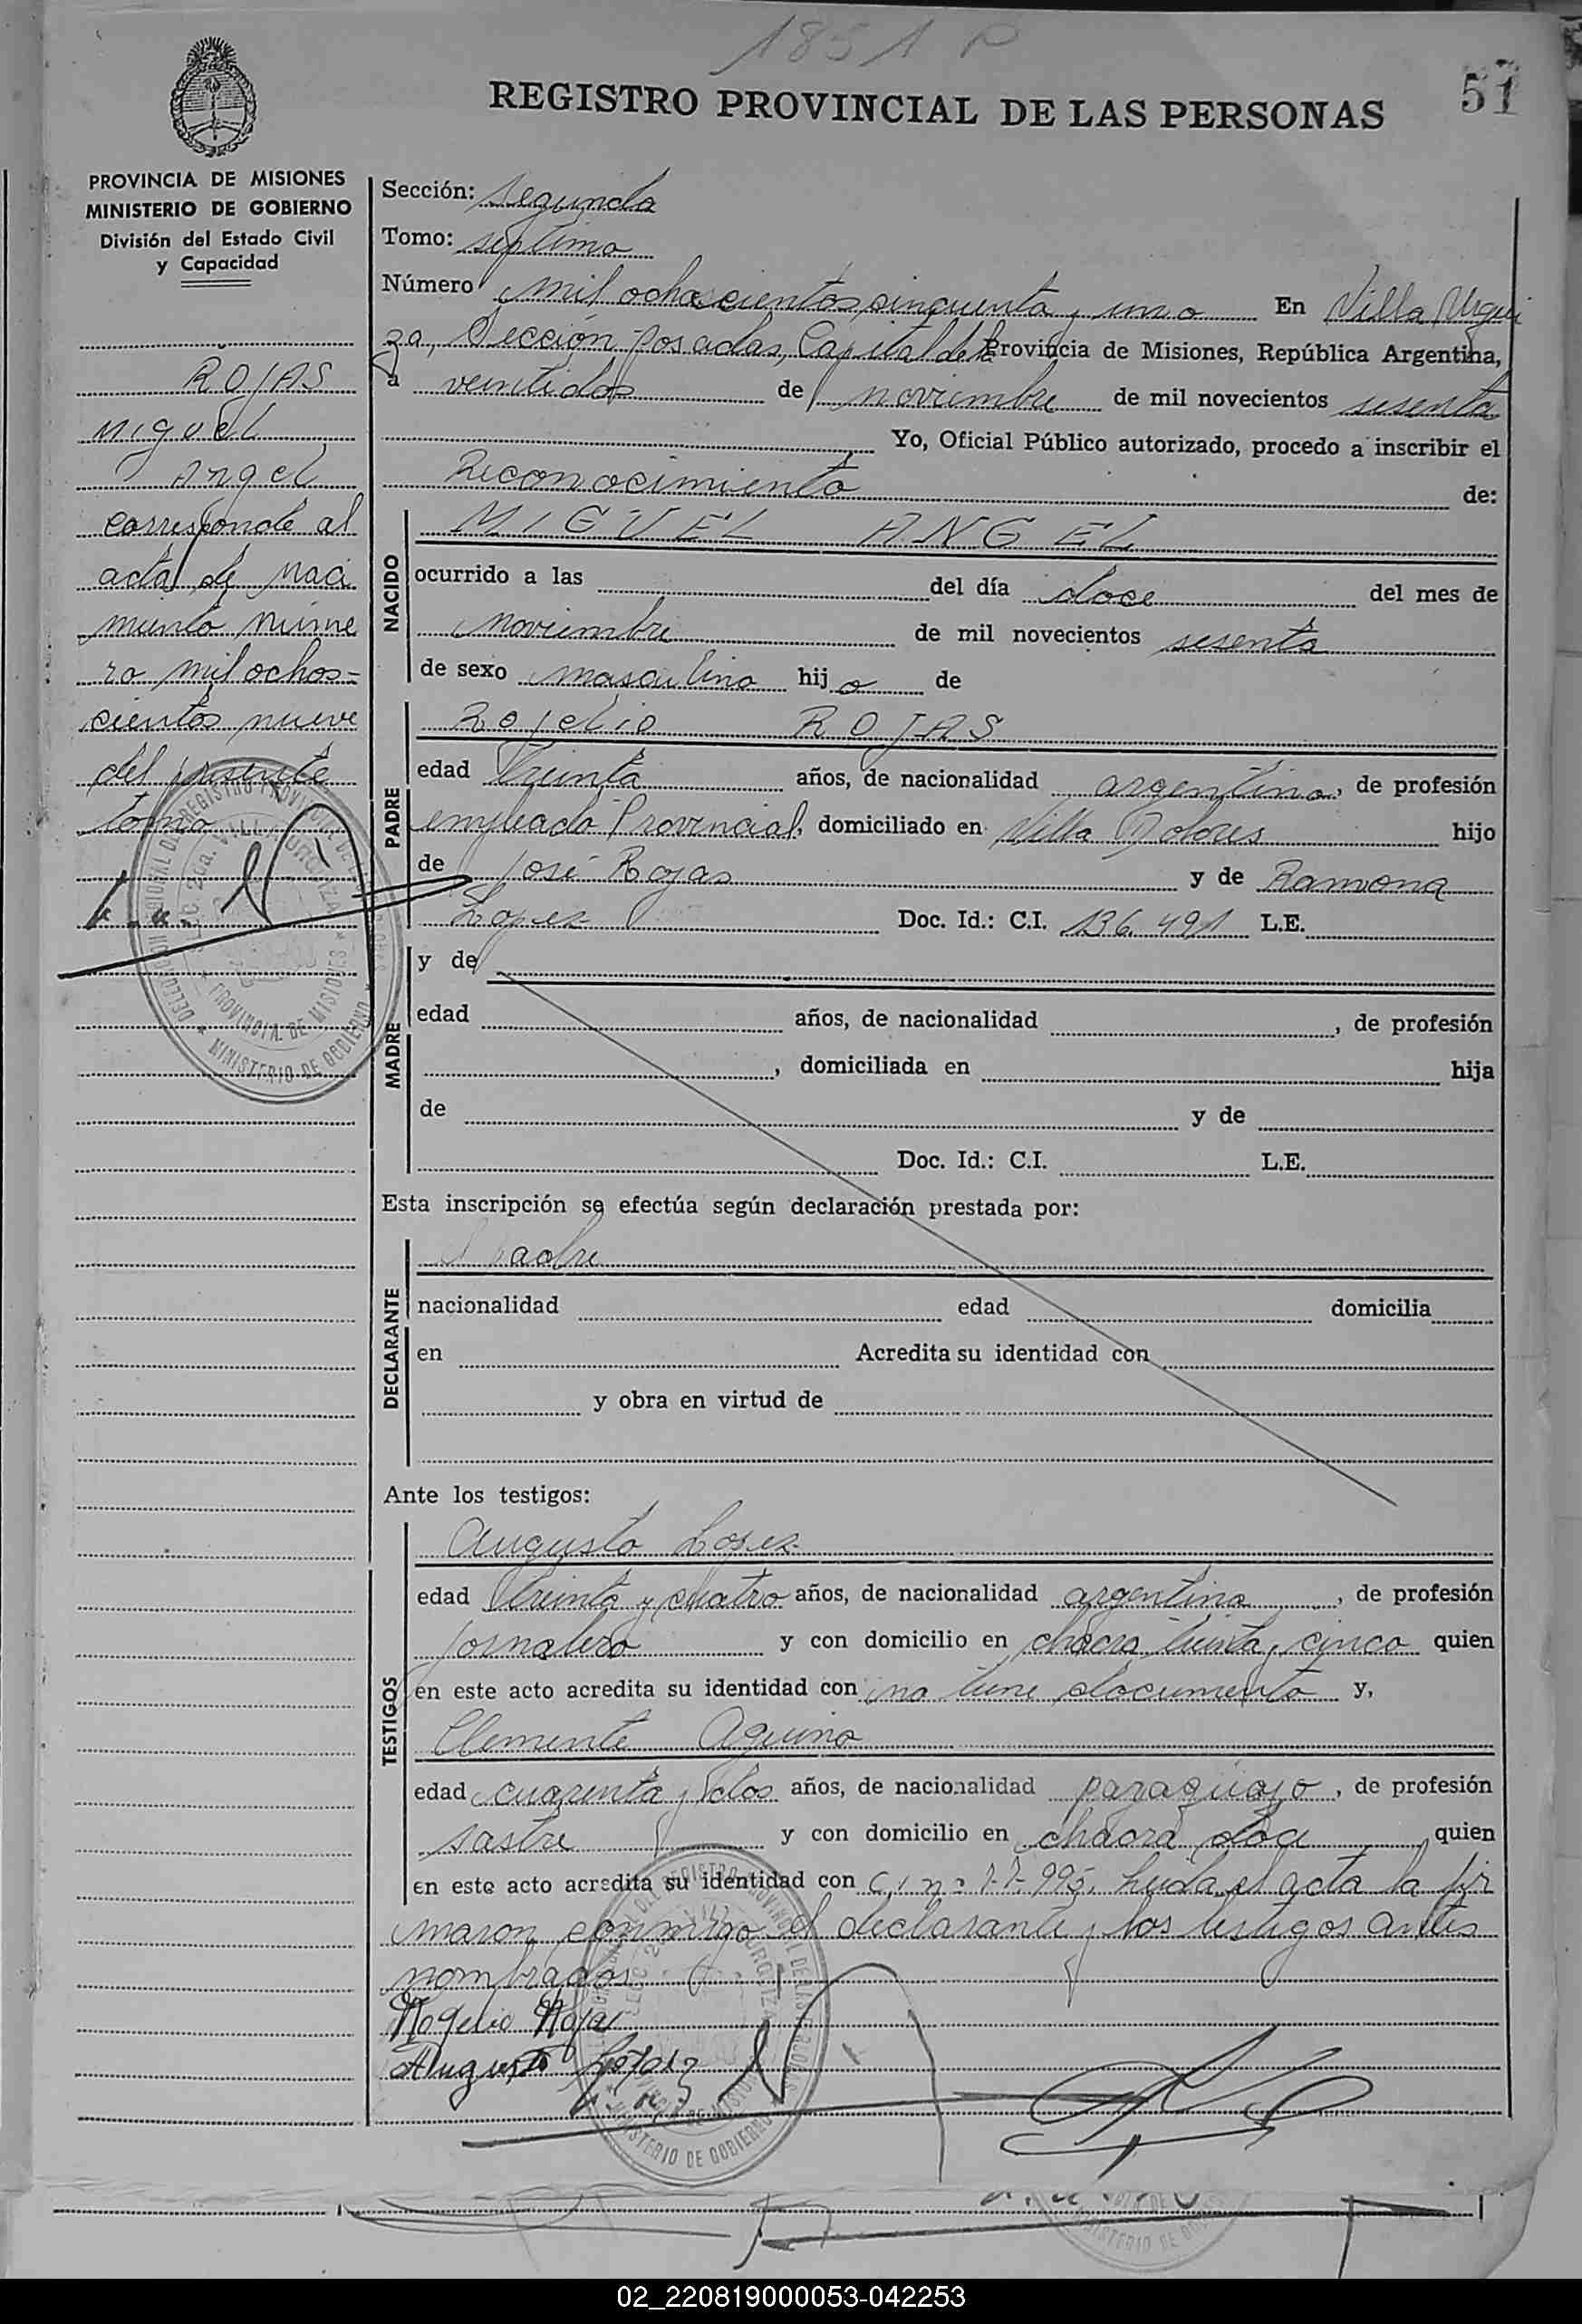 1851 P
51
REGISTRO PROVINCIAL DE LAS PERSONAS
PROVINCIA DE MISIONES
MINISTERIO DE GOBIERNO
División del Estado Civil
y Capacidad
ROJAS
Miguel
Angel
corresponde al
acta de naci
miento núme
ro mil ochos=
cientos nueve
del presente
tomo
Sección: Segunda
Tomo: septimo
Número mil ochoscientos cinquenta y uno En Villa Urqui
za, Sección Posadas, Capital de la Provincia de Misiones, República Argentina,
a veintidos de noviembre de mil novecientos sesenta
Yo, Oficial Público autorizado, procedo a inscribir el
Reconocimiento de:
NACIDO
MIGUEL ANGEL
ocurrido a las del día doce del mes de
noviembre de mil novecientos sesenta
de sexo masculino hijo de
PADRE
Rojelio ROJAS
edad treinta años, de nacionalidad argentino, de profesión
empleado Provincial, domiciliado en Villa Dolores hijo
de José Rojas y de Ramona
Lopez Doc. Id.: C.I. 136.491 L.E.
MADRE
y de
edad años, de nacionalidad , de profesión
, domiciliada en hija
de y de
Doc. Id.: C.I. L.E.
Esta inscripción se efectúa según declaración prestada por:
DECLARANTE
padre
nacionalidad edad domicilia
en Acredita su identidad con
y obra en virtud de
Ante los testigos:
TESTIGOS
Augusto Lopez
edad treinta y cuatro años, de nacionalidad argentina, de profesión
jornalero y con domicilio en chacra treinta y cinco quien
en este acto acredita su identidad con no tiene documento y,
Clemente Aquino
edad cuarenta y dos años, de nacionalidad paraguayo, de profesión
sastre y con domicilio en chacra doce quien
en este acto acredita su identidad con C.I nº Leida el acta la fir
maron conmigo el declarante y los testigos antes
nombrados
Rogelio Rojas
Augusto Lopez
02_220819000053-042253